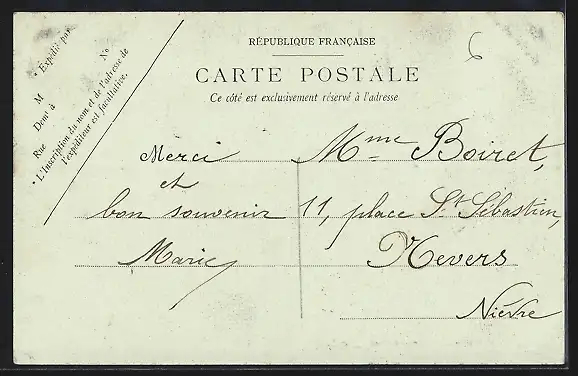 RÉPUBLIQUE FRANÇAISE
CARTE POSTALE
Ce côté est exclusivement réservé à l'adresse
6
• Expédié par
M
Demt à
Rue No
• L'Inscription du nom et de l'adresse de
l'expéditeur est facultative.
Merci
et
bon souvenir
Marie
Mme Boiret,
11, place St Sébastien,
Nevers
Nièvre